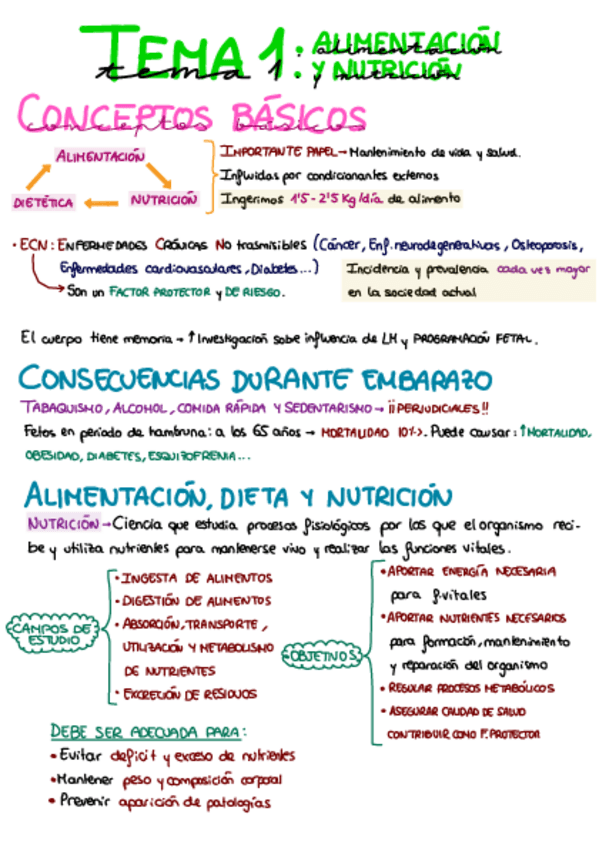 TEMA 1: ALIMENTACIÓN
tema 1: alimentación
Y NUTRICIÓN
y nutrición
CONCEPTOS BÁSICOS
conceptos básicos
ALIMENTACIÓN
DIETÉTICA
NUTRICIÓN
IMPORTANTE PAPEL → Mantenimiento de vida y salud.
Influidas por condicionantes externos
Ingerimos 1'5 - 2'5 Kg/día de alimento
• ECN: ENFERMEDADES CRÓNICAS NO trasmisibles (Cáncer, Enf. neurodegenerativas, Osteoporosis,
Enfermedades cardiovasculares, Diabetes...)
→ Son un FACTOR PROTECTOR y DE RIESGO.
Incidencia y prevalencia cada vez mayor
en la sociedad actual
El cuerpo tiene memoria → ↑ Investigación sobe influencia de LM y PROGRAMACIÓN FETAL.
CONSECUENCIAS DURANTE EMBARAZO
TABAQUISMO, ALCOHOL, COMIDA RÁPIDA Y SEDENTARISMO → ¡¡PERJUDICIALES!!
Fetos en periodo de hambruna: a los 65 años → MORTALIDAD 10%>. Puede causar: ↑MORTALIDAD,
OBESIDAD, DIABETES, ESQUIZOFRENIA...
ALIMENTACIÓN, DIETA Y NUTRICIÓN
NUTRICIÓN → Ciencia que estudia procesos fisiológicos por los que el organismo reci-
be y utiliza nutrientes para mantenerse vivo y realizar las funciones vitales.
CAMPOS DE
ESTUDIO
• INGESTA DE ALIMENTOS
• DIGESTIÓN DE ALIMENTOS
• ABSORCIÓN, TRANSPORTE,
UTILIZACIÓN Y METABOLISMO
DE NUTRIENTES
• EXCRECIÓN DE RESIDUOS
OBJETIVOS
• APORTAR ENERGÍA NECESARIA
para f.vitales
• APORTAR NUTRIENTES NECESARIOS
para formación, mantenimiento
y reparación del organismo
• REGULAR PROCESOS METABÓLICOS
• ASEGURAR CALIDAD DE SALUD
CONTRIBUIR COMO F. PROTECTOR
DEBE SER ADECUADA PARA:
• Evitar deficit y exceso de nutrientes
• Mantener peso y composición corporal
• Prevenir aparición de patologías